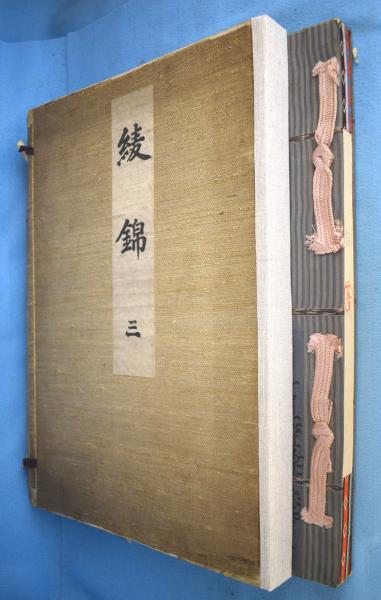 綾錦
三